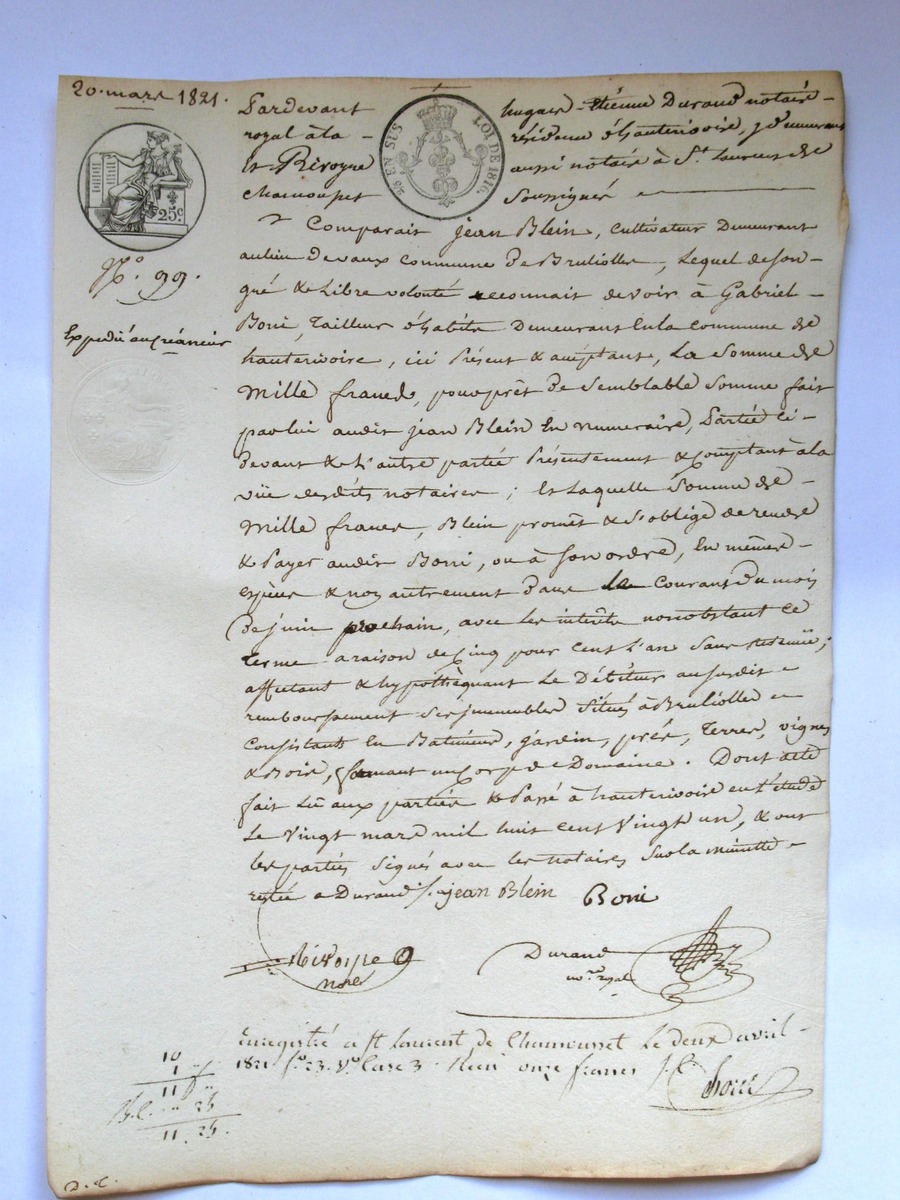 20. mars 1821.
Pardevant hugues Etienne Durand notaire
royal à la résidence d'hauterivoire, y demeurant
et Rivoyre aussi notaire à St. Laurent de
chamousset Soussignés
25 EN SUS
LOI DE 1816.
25c.
No. 99.
Expédié au créancier
Comparait jean Blein, Cultivateur Demeurant
au lieu de vaux commune de Brullolles, Lequel de son
gré & Libre volonté reconnait devoir à Gabriel
Boni, Tailleur d'habits Demeurant En la Commune de
hauterivoire, ici Présent & acceptant, La Somme de
Mille francs, pour prêt de Semblable Somme fait
par lui audit jean Blein En numéraire, Partie ci-
devant & L'autre partie Présentement & comptant à la
vüe desdits notaires; Et Laquelle Somme de
Mille francs, Blein promet & s'oblige de rendre
& Payer audit Boni, ou à Son ordre, En mêmes
espèces & non autrement Dans le courant Du mois
De juin prochain, avec les intérêts nonobstant ce
terme a raison de Cinq pour Cent L'an Sans retenüe;
affectant & hypothèquant Le Débiteur au susdit
remboursement Ses immeubles Situés à Brullolles
Consistants En Batiments, jardin, prés, Terres, vignes
& Bois, formant un Corps de Domaine. Dont acte
fait Lû aux parties & Passé à hauterivoire en L'étude
Le Vingt mars mil huit cent Vingt un, & ont
les parties Signés avec les notaires Sur la minutte
restée a Durand. jean Blein Boni
Rivoire nore
Durand
nore royal
Enregistré a St Laurent de Chamousset Le deux avril
1821 fo. 23. Vo. Case 3. Recu onze francs
10
1
11
25
11. 25.
D. C.